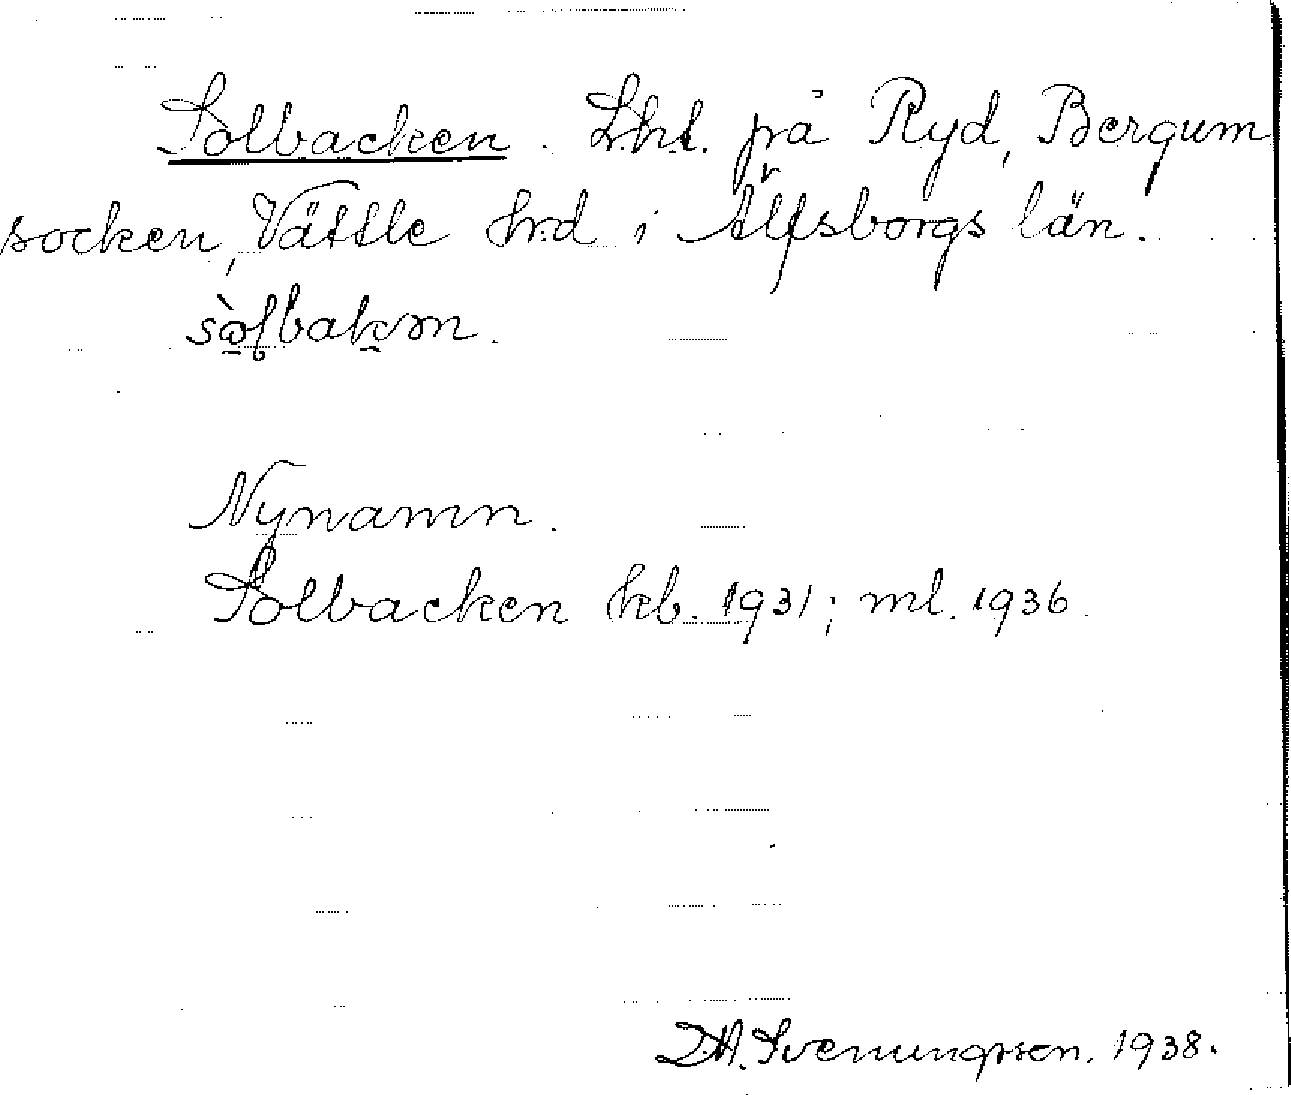 Solbacken. Lht. på Ryd, Bergum
socken, Vättle hrd i Älfsborgs län.
sòlbakən.
Nynamn.
Solbacken kb. 1931; ml. 1936.
Svenungsson. 1938.